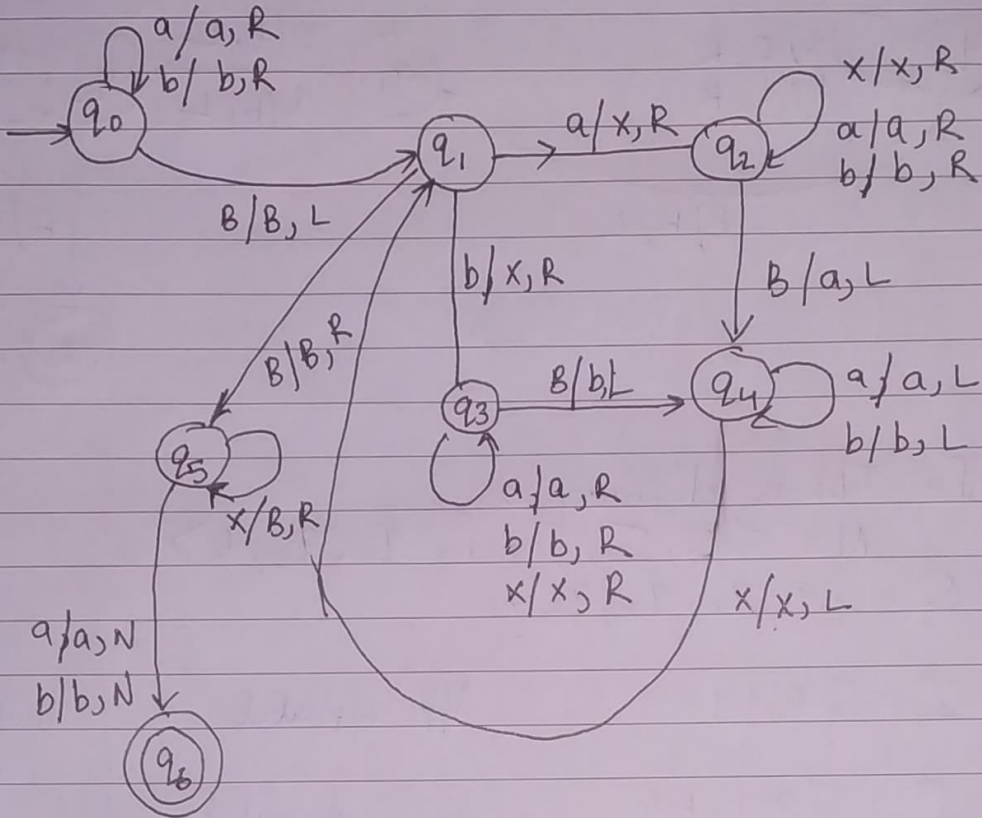 a/a, R
b/b, R
q0
B/B, L
q1
a/x, R
q2
x/x, R
a/a, R
b/b, R
b/x, R
B/a, L
B/B, R
q3
B/b, L
q4
a/a, L
b/b, L
q5
x/B, R
a/a, R
b/b, R
x/x, R
x/x, L
a/a, N
b/b, N
q6